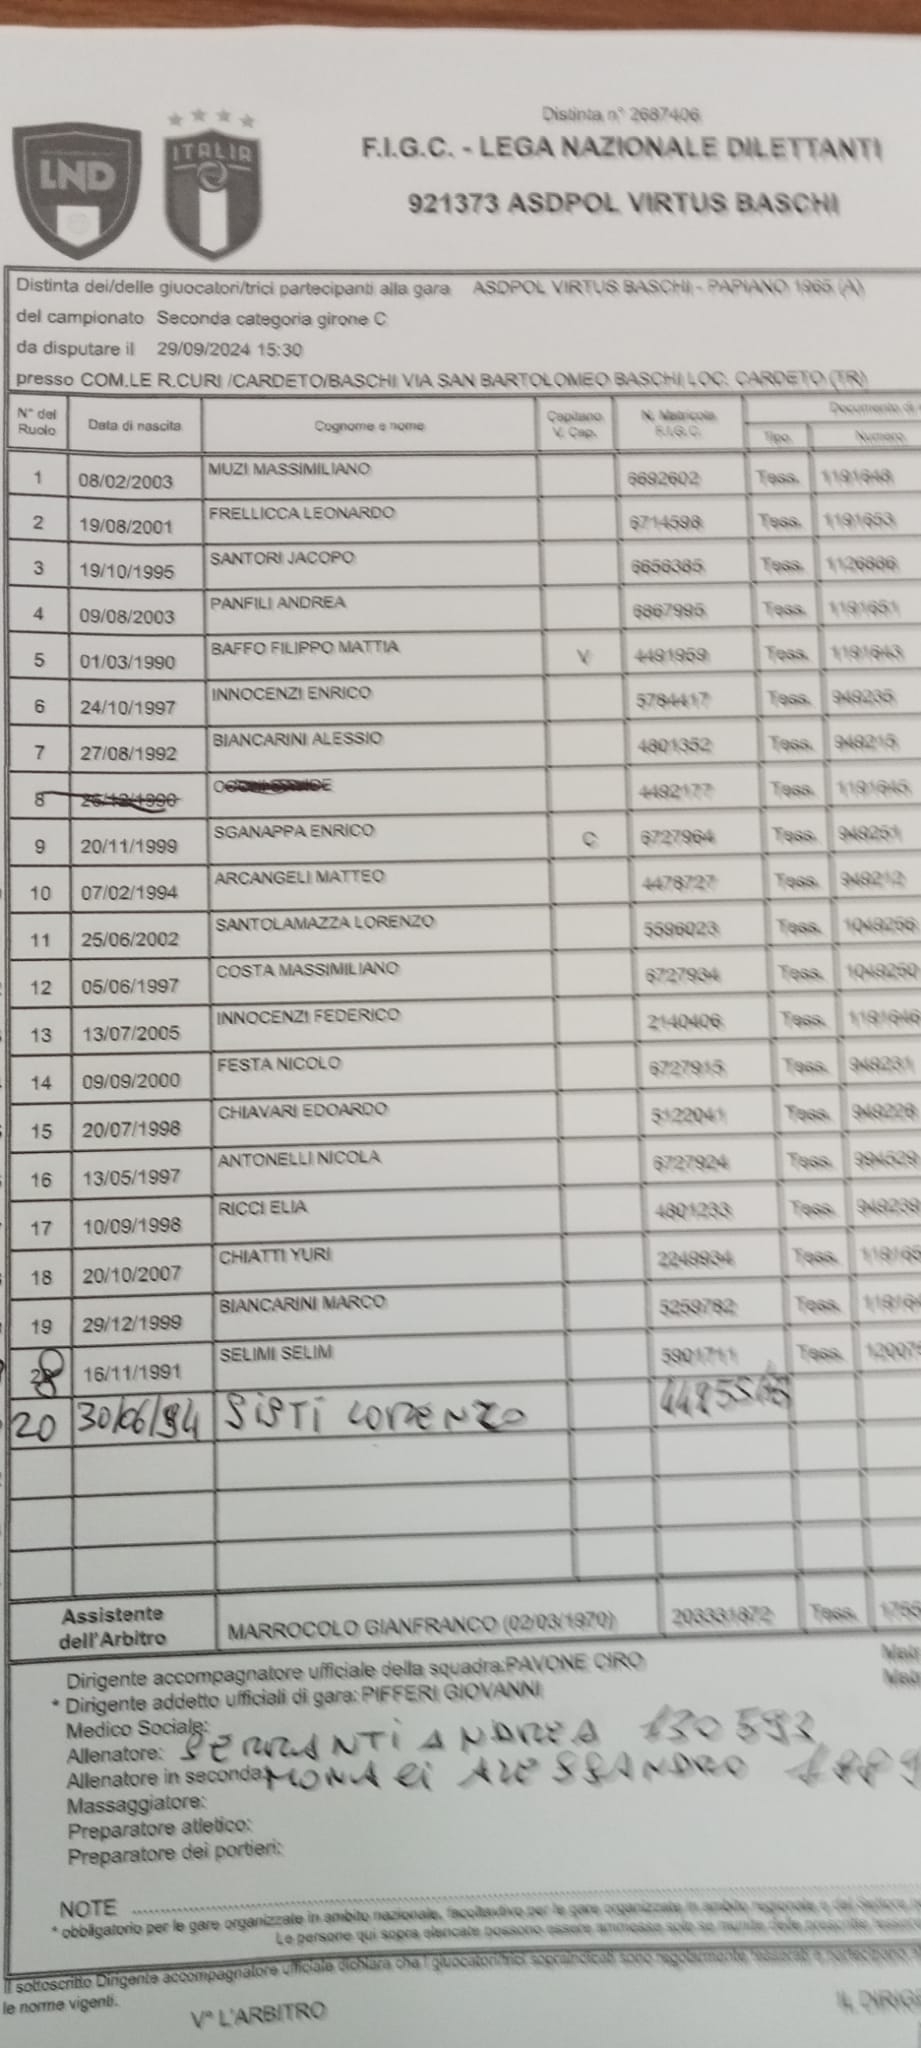 LND
ITALIA
Distinta n° 2687406
F.I.G.C. - LEGA NAZIONALE DILETTANTI
921373 ASDPOL VIRTUS BASCHI
Distinta dei/delle giuocatori/trici partecipanti alla gara ASDPOL VIRTUS BASCHI - PAPIANO 1965 (A)
del campionato Seconda categoria girone C
da disputare il 29/09/2024 15:30
presso COM.LE R.CURI /CARDETO/BASCHI VIA SAN BARTOLOMEO BASCHI LOC. CARDETO (TR)
N° del Ruolo Data di nascita Cognome e nome Capitano V. Cap. N. Matricola F.I.G.C. Documento di
Tipo Numero
1 08/02/2003 MUZI MASSIMILIANO 6692602 Tess. 1191648
2 19/08/2001 FRELLICCA LEONARDO 6714598 Tess. 1191653
3 19/10/1995 SANTORI JACOPO 6656385 Tess.
4 09/08/2003 PANFILI ANDREA 6867995 Tess. 1191651
5 01/03/1990 BAFFO FILIPPO MATTIA V 4491959 Tess. 1191643
6 24/10/1997 INNOCENZI ENRICO 5784417 Tess. 949235
7 27/08/1992 BIANCARINI ALESSIO 4801352 Tess. 949215
8 26/12/1990 4492177 Tess. 1191645
9 20/11/1999 SGANAPPA ENRICO C 6727964 Tess. 949251
10 07/02/1994 ARCANGELI MATTEO 4478727 Tess. 949212
11 25/06/2002 SANTOLAMAZZA LORENZO 5596023 Tess. 1049256
12 05/06/1997 COSTA MASSIMILIANO 6727934 Tess. 1049250
13 13/07/2005 INNOCENZI FEDERICO 2140406 Tess. 1191646
14 09/09/2000 FESTA NICOLO 6727915 Tess. 949231
15 20/07/1998 CHIAVARI EDOARDO 5122041 Tess. 949226
16 13/05/1997 ANTONELLI NICOLA 6727924 Tess. 994529
17 10/09/1998 RICCI ELIA 4801233 Tess. 949239
18 20/10/2007 CHIATTI YURI 2249934 Tess.
19 29/12/1999 BIANCARINI MARCO 5259782 Tess.
8 16/11/1991 SELIMI SELIM 5901711 Tess.
20 30/06/94 SISTI LORENZO
Assistente dell'Arbitro MARROCOLO GIANFRANCO (02/03/1970) 203331872 Tess.
Dirigente accompagnatore ufficiale della squadra: PAVONE CIRO
* Dirigente addetto ufficiali di gara: PIFFERI GIOVANNI
Medico Sociale:
Allenatore: SERRANTI ANDREA 130593
Allenatore in seconda: MONACI ALESSANDRO
Massaggiatore:
Preparatore atletico:
Preparatore dei portieri:
NOTE
* obbligatorio per le gare organizzate in ambito nazionale, facoltativo per le gare organizzate in ambito regionale e del Settore
Le persone qui sopra elencate possono essere ammesse solo se munite delle prescritte
Il sottoscritto Dirigente accompagnatore ufficiale dichiara che i giuocatori/trici sopraindicati sono regolarmente tesserati e partecipano
le norme vigenti.
V° L'ARBITRO
IL DIRIG